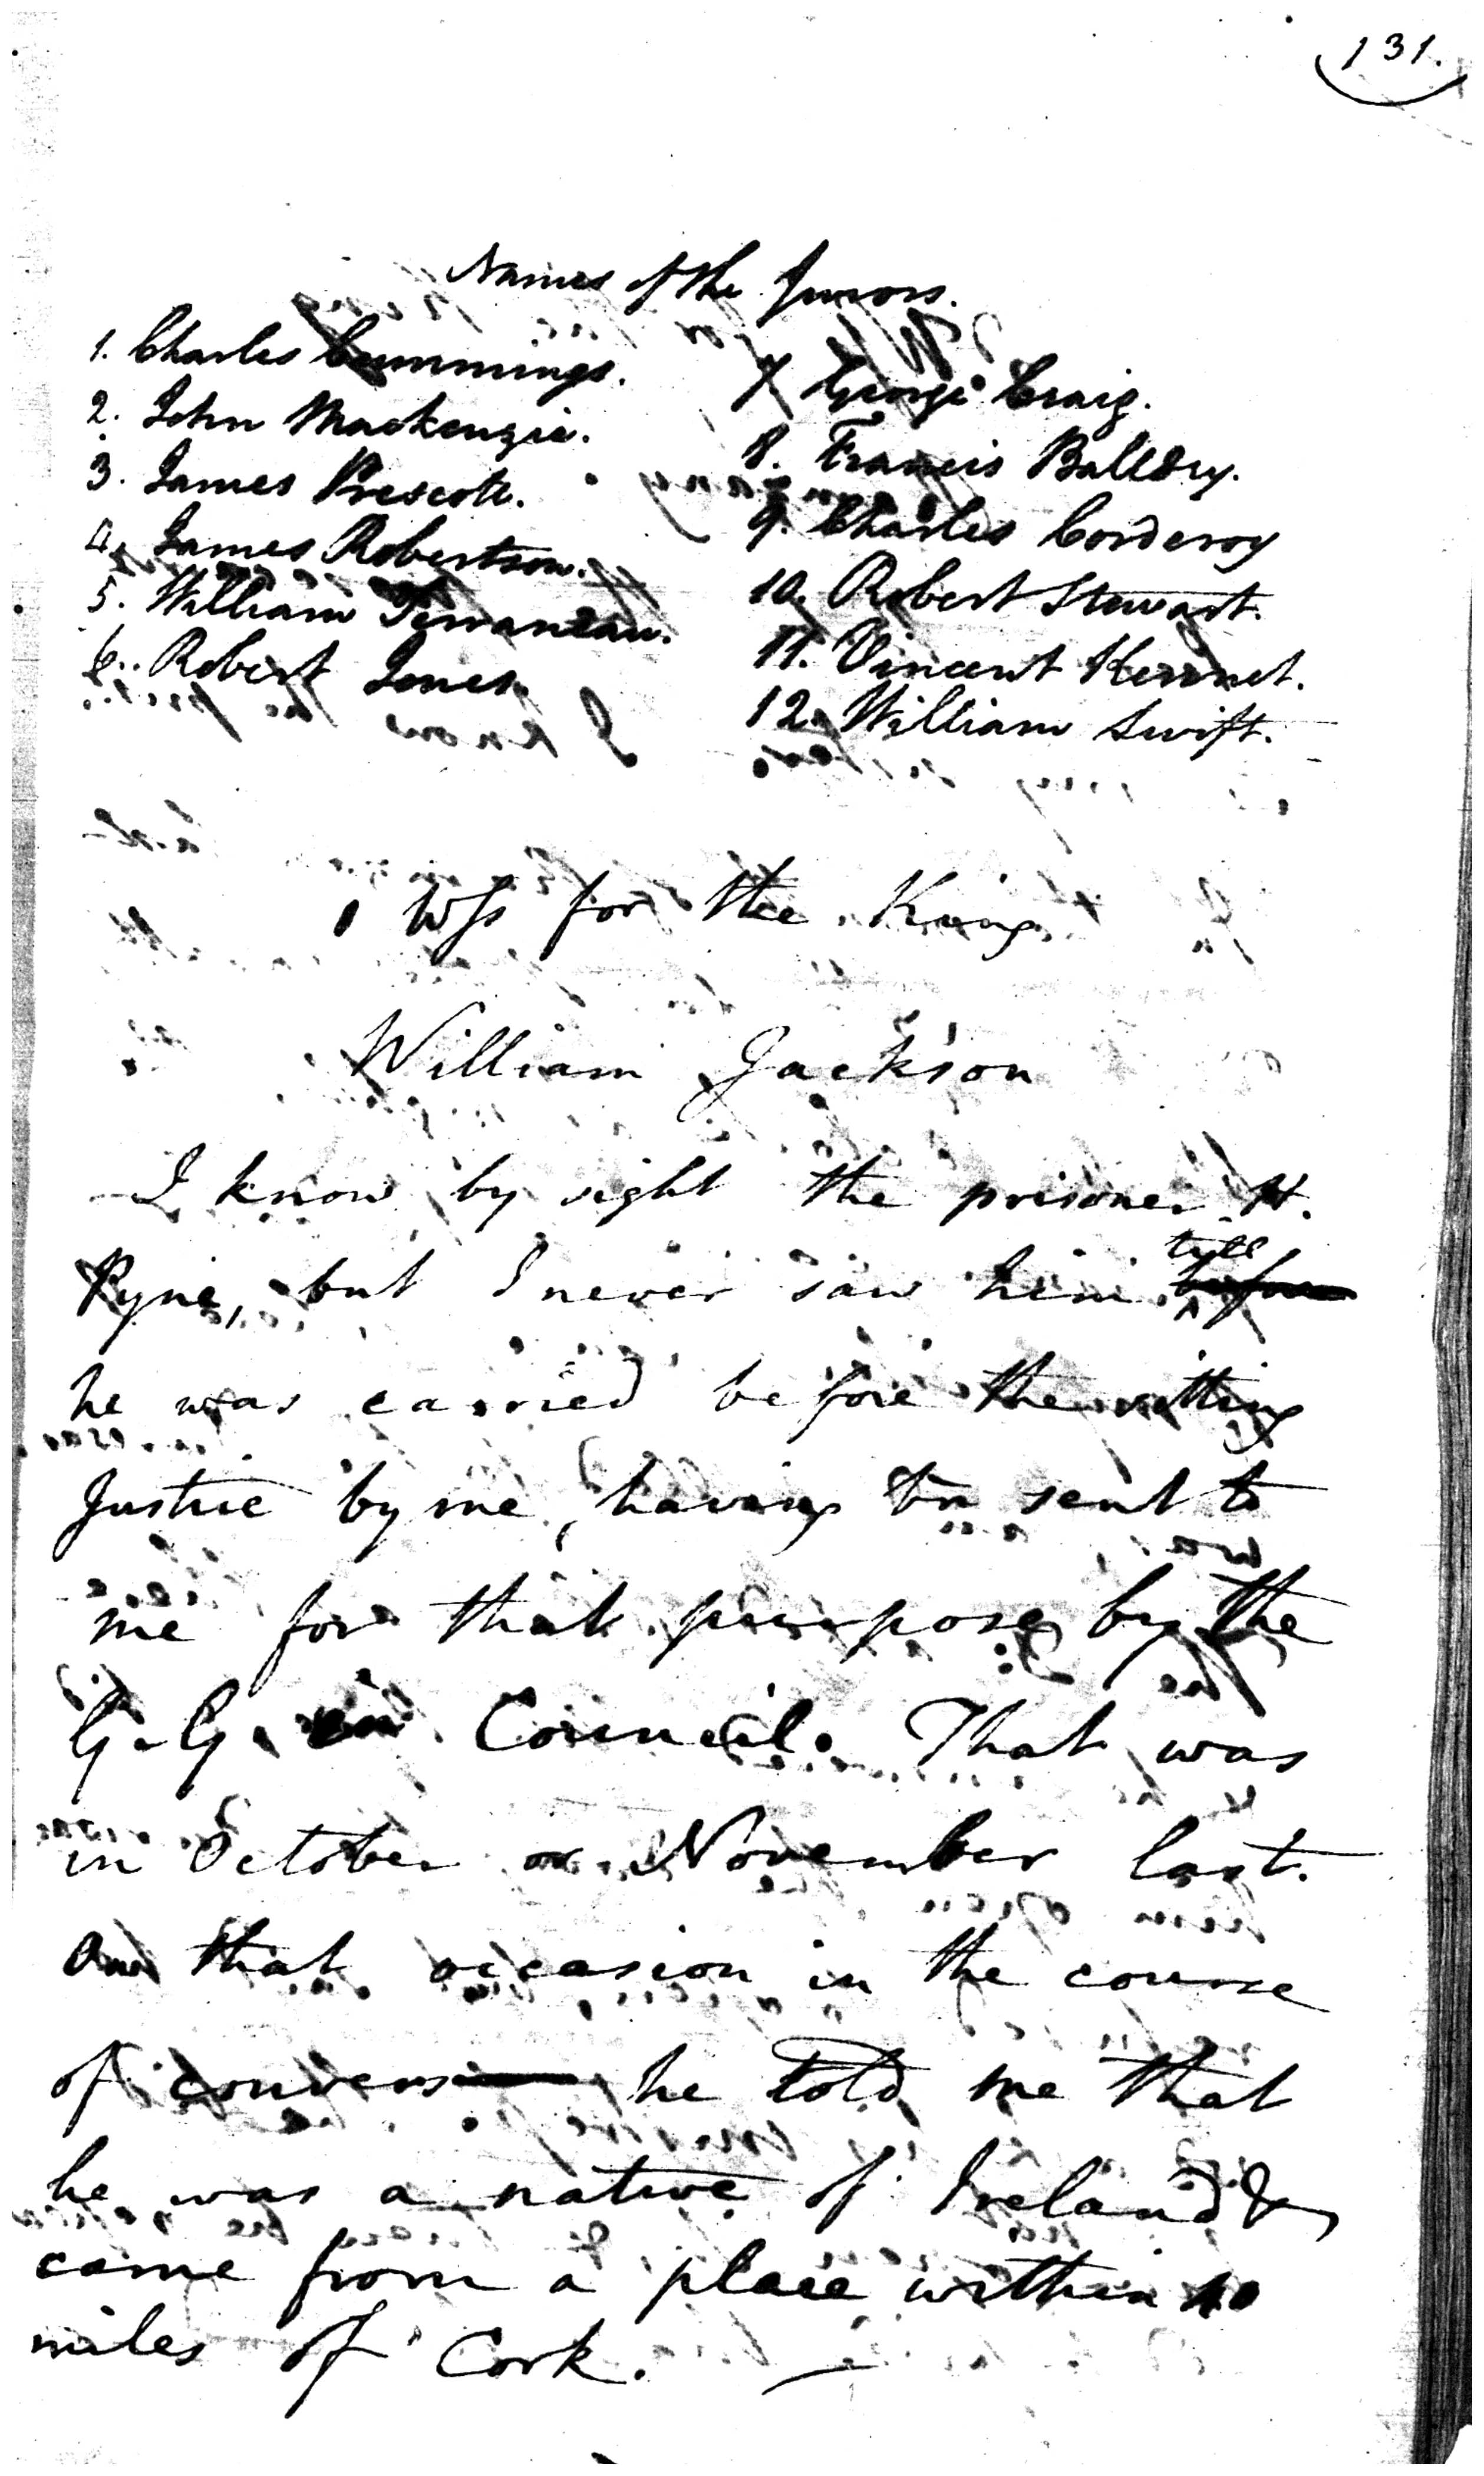 131.
Names of the Jurors.
1. Charles Cummings.
2. John Mackenzie.
3. James Prescott.
4. James Robertson.
5. William Terraneau.
6. Robert Jones
7 George Craig.
8. Francis Balldry.
9. Charles Corderoy
10. Robert Stewart.
11. Vincent
12. William Swift.
1 Wss for the King
William Jackson
I know by sight the prisoner H.
Ryne, but I never saw him till before
he was carried before the sitting
Justice by me, having bn sent to
me for that purpose by the
G. G. in Council. That was
in October or November last.
On that occasion in the course
of convers he told me that
he was a native of Ireland &
came from a place within 40
miles of Cork.